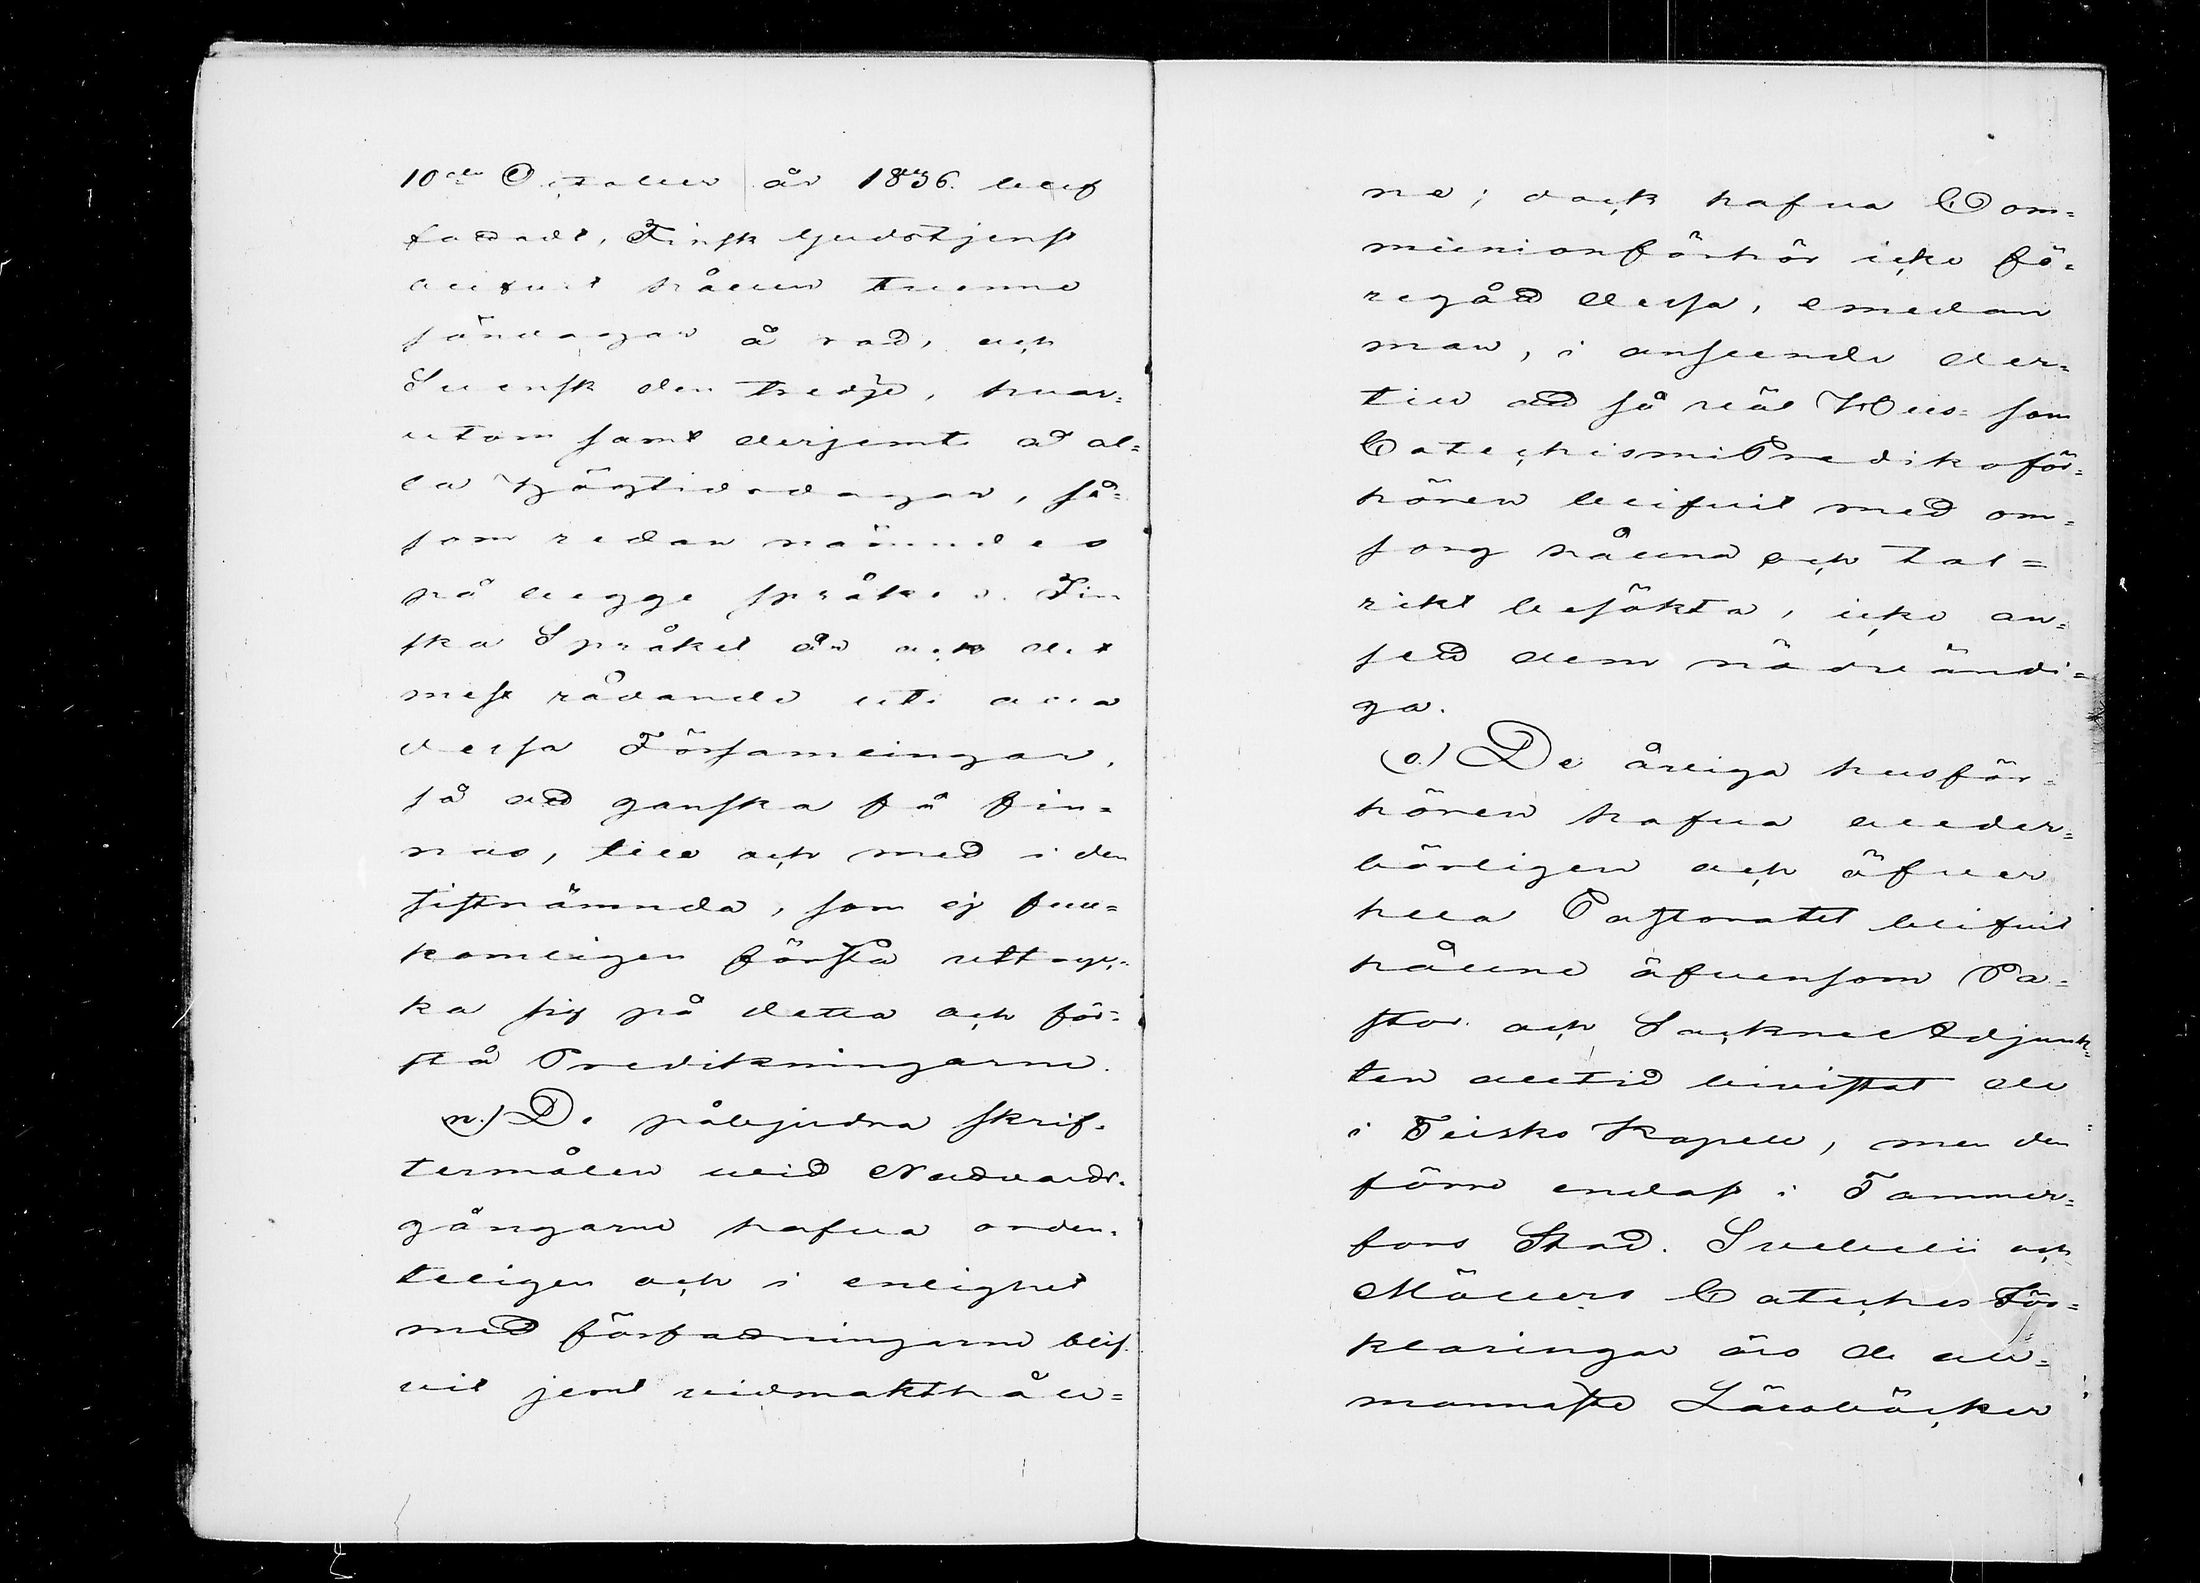 10de October år 1836. blef
fattadt, Finsk Gudstjenst
blifvit hållen tvenne
söndagar å rad, och
Svensk den tredje, hvar=
utom samt derjemte at al=
la Högtidsdagar, så=
som redan nämndes
på begge språken. Fin
ska Språket är ock det
mest rådande uti alla
dessa Församlingar,
så att ganska få fin=
nas, till och med i den
sistnämnda, som ej full=
komligen förstå uttryc=
ka sig på detta och för=
stå Predikningarne.
n.) De påbjudna skrif=
termålen vid Nattvards=
gångarne hafva orden=
teligen och i enlighet
med författningarne blif=
vit jemt vidmakthåll=
ne; dock hafva Com=
munionförhör icke fö=
regått dessa, emedan
man, i anseende der=
till att så väl Hus= som
Catechismi Predikoför=
hören blifvit med om=
sorg hållna och tal=
rikt besökta, icke an=
sett dem nödvändi=
ga.
o.) De årliga husför=
hören hafva veeder=
börligen och öfver
hela Pastoratet blifvit
hållne äfvensom Pa=
stor och Sockne Adjunk=
ten alltid bivistat de
i Teisko Kapell, men den
förre endast i Tammer=
fors Stad. Svebelii och
Möllers Cateches För=
klaringar äro de all=
mannaste Läroböcker